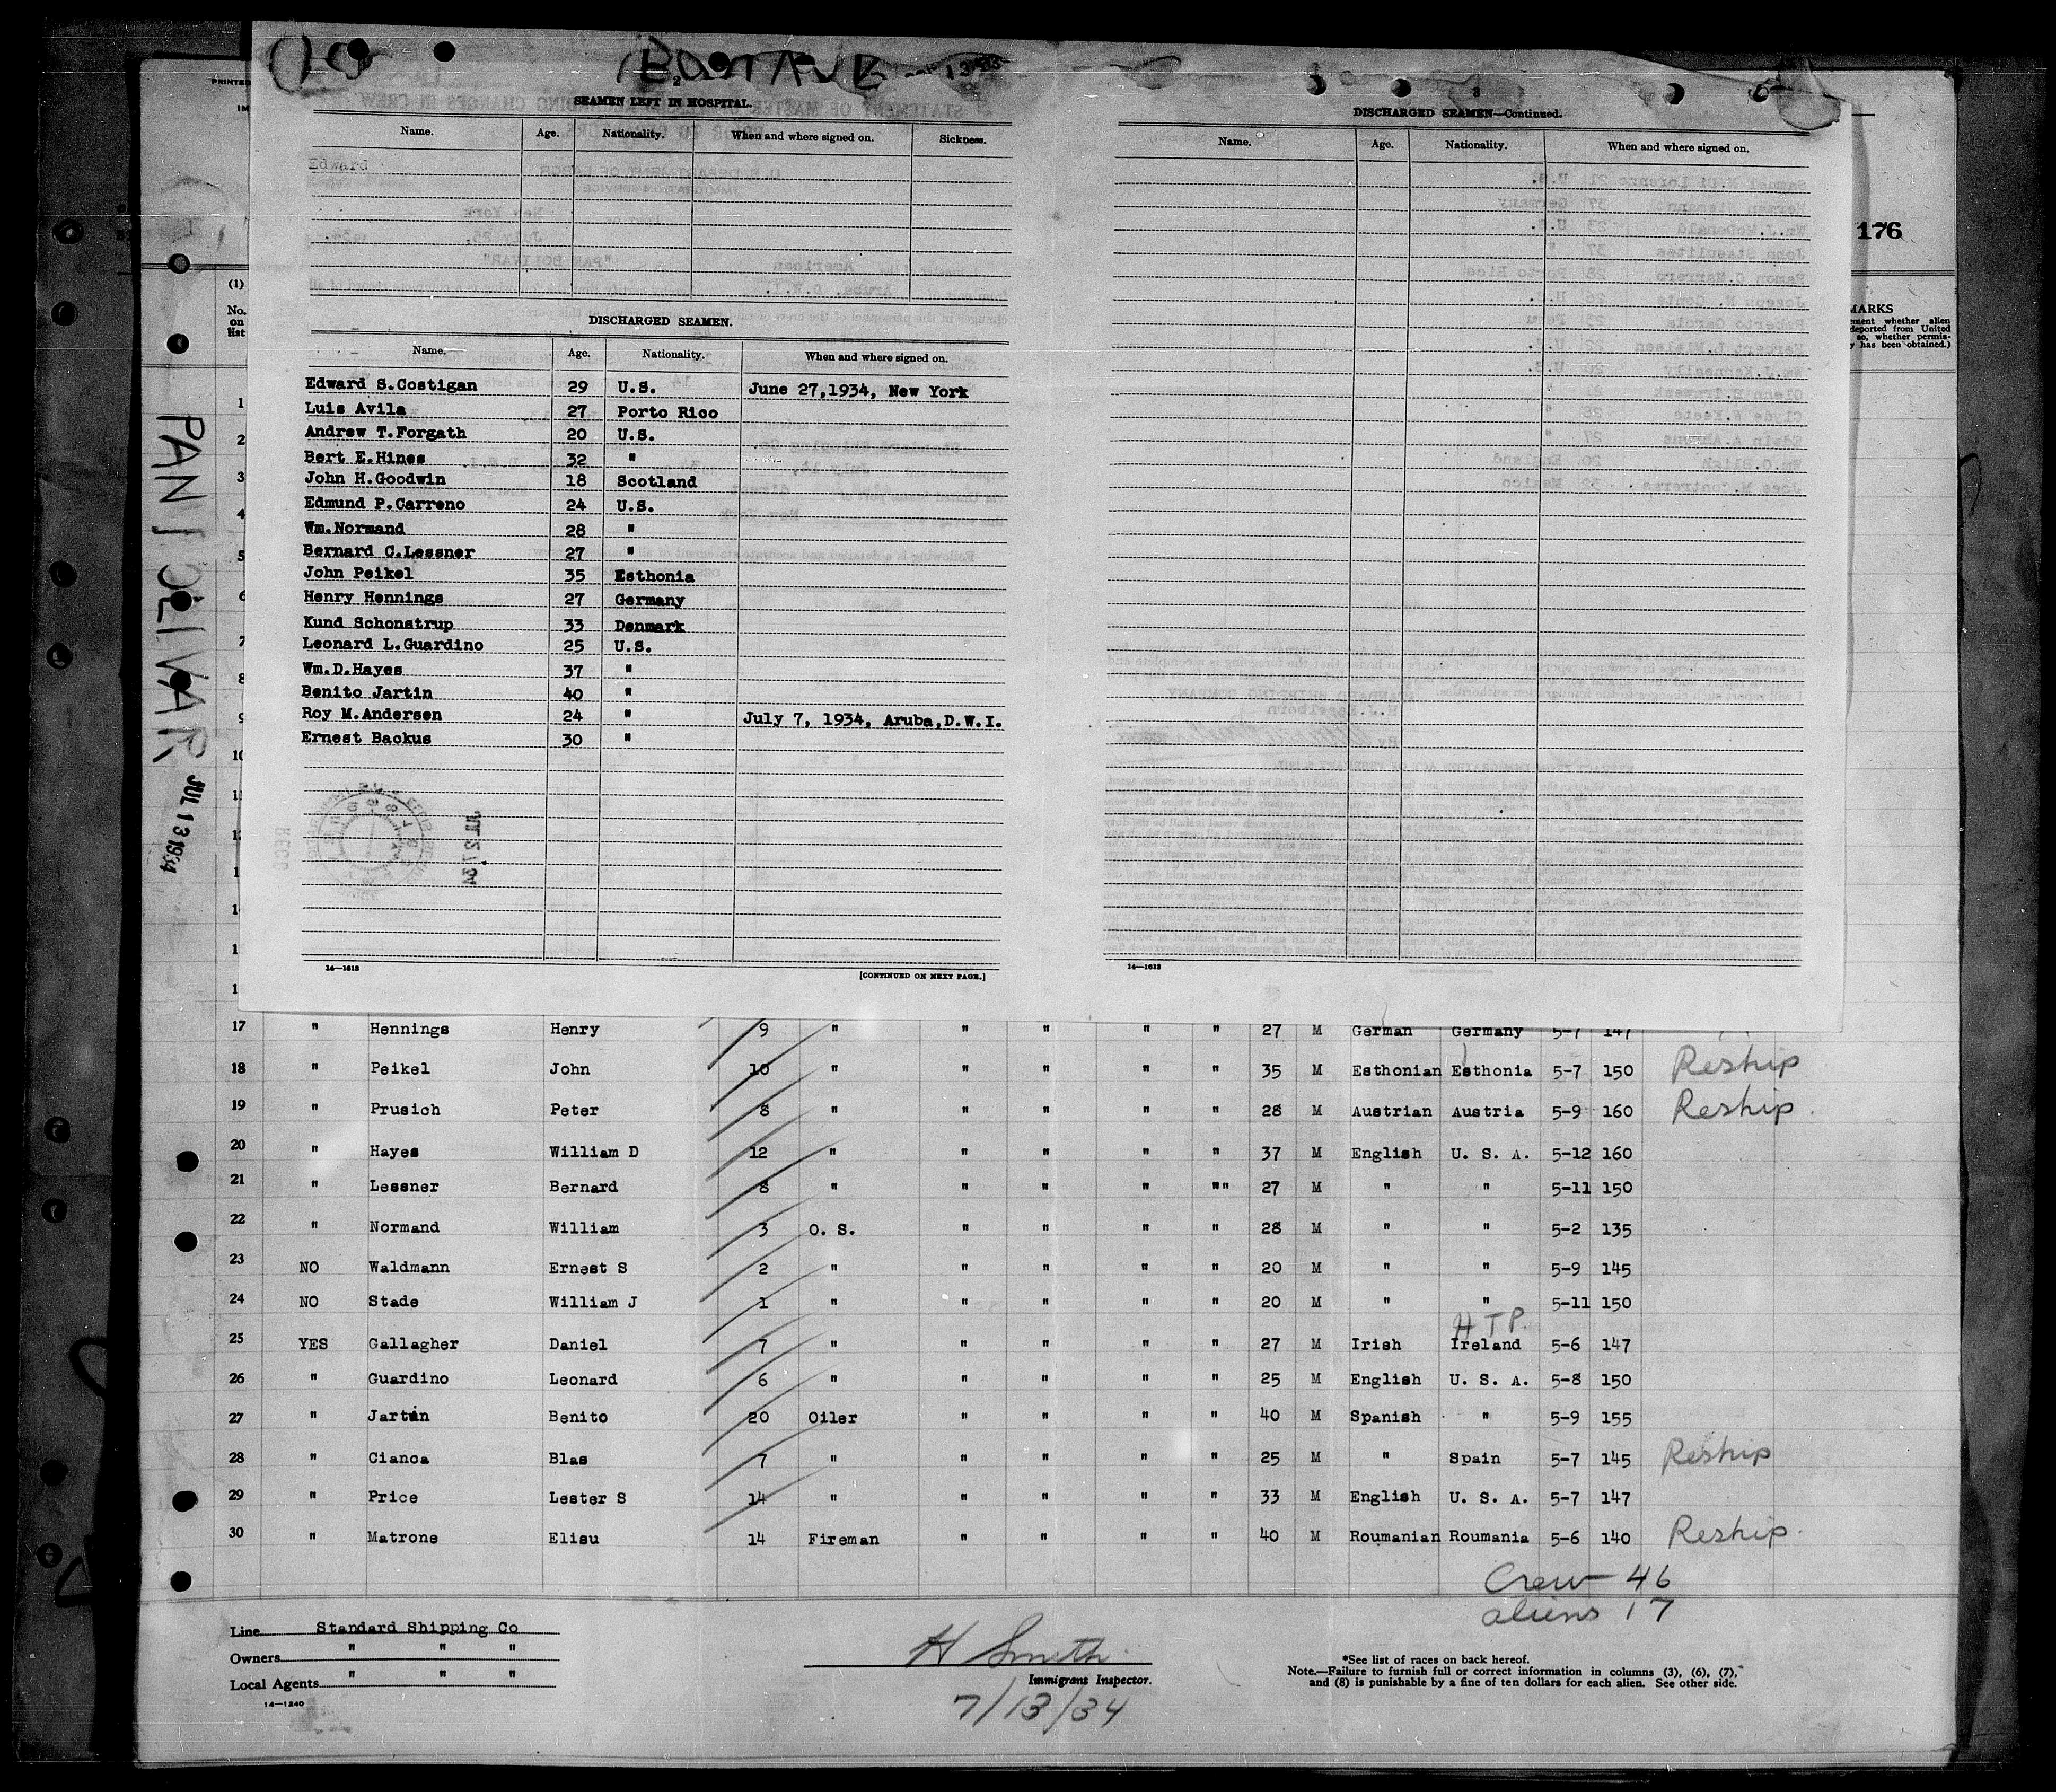 2
SEAMEN LEFT IN HOSPITAL.
Name. Age. Nationality. When and where signed on. Sickness.
Edward
DISCHARGED SEAMEN.
Name. Age. Nationality. When and where signed on.
Edward S.Costigan 29 U.S. June 27,1934, New York
Luis Avila 27 Porto Rico
Andrew T.Forgath 20 U.S.
Bert E.Hines 32 "
John H.Goodwin 18 Scotland
Edmund P.Carreno 24 U.S.
Wm.Normand 28 "
Bernard C.Lessner 27 "
John Peikel 35 Esthonia
Henry Hennings 27 Germany
Kund Schonstrup 33 Denmark
Leonard L.Guardino 25 U.S.
Wm.D.Hayes 37 "
Benito Jartin 40 "
Roy M.Andersen 24 " July 7, 1934, Aruba,D.W.I.
Ernest Backus 30 "
14—1613
[CONTINUED ON NEXT PAGE.]
3
DISCHARGED SEAMEN—Continued.
Name. Age. Nationality. When and where signed on.
14—1613
176
PRINTED
(1)
No.
on
list
MARKS
ment whether alien
deported from United
so, whether permis-
y has been obtained.)
1
2
3
4
5
6
7
8
9
10
PAN BOLIVAR
JUL 13 1934
17 " Hennings Henry 9 " " " " " 27 M German Germany 5-7 147
18 " Peikel John 10 " " " " " 35 M Esthonian Esthonia 5-7 150 Reship
19 " Prusich Peter 8 " " " " " 28 M Austrian Austria 5-9 160 Reship
20 " Hayes William D 12 " " " " " 37 M English U. S. A. 5-12 160
21 " Lessner Bernard 8 " " " " "" 27 M " " 5-11 150
22 " Normand William 3 O. S. " " " " 28 M " " 5-2 135
23 NO Waldmann Ernest S 2 " " " " " 20 M " " 5-9 145
24 NO Stade William J 1 " " " " " 20 M " " 5-11 150
H T P.
25 YES Gallagher Daniel 7 " " " " " 27 M Irish Ireland 5-6 147
26 " Guardino Leonard 6 " " " " " 25 M English U. S. A. 5-8 150
27 " Jartin Benito 20 Oiler " " " " 40 M Spanish " 5-9 155
28 " Cianca Blas 7 " " " " " 25 M " Spain 5-7 145 Reship
29 " Price Lester S 14 " " " " " 33 M English U. S. A. 5-7 147
30 " Matrone Elisu 14 Fireman " " " " 40 M Roumanian Roumania 5-6 140 Reship
Crew 46
aliens 17
Line Standard Shipping Co
Owners " " "
Local Agents " " "
14—1240
H Smith
Immigrant Inspector.
7/13/34
*See list of races on back hereof.
Note.—Failure to furnish full or correct information in columns (3), (6), (7),
and (8) is punishable by a fine of ten dollars for each alien. See other side.